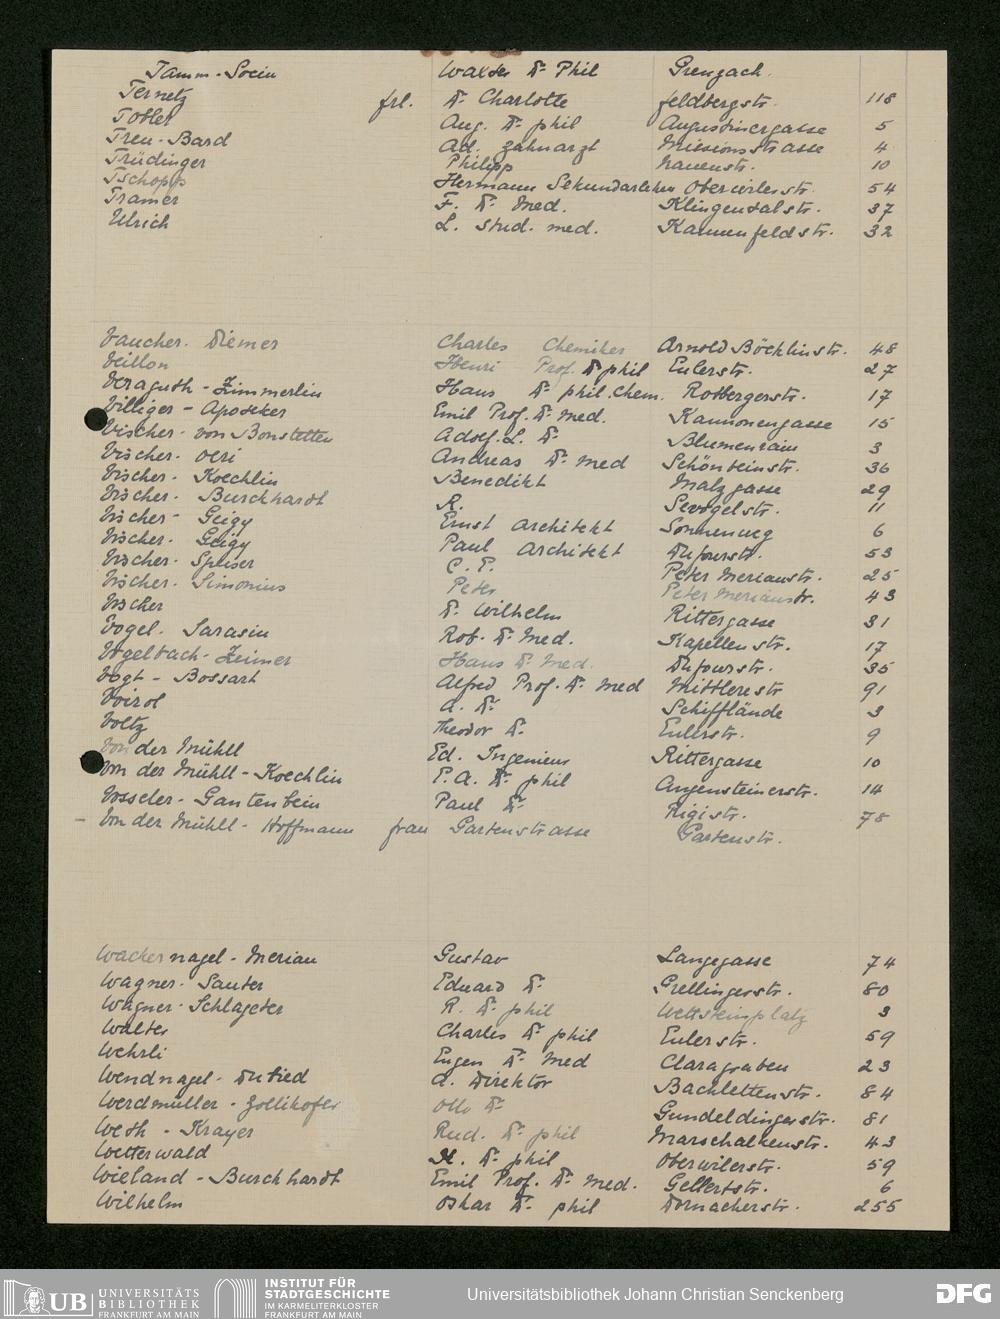 Tamm-Socin Walter Dr Phil Grenzach.
Ternetz frl. Dr Charlotte feldbergstr. 118
Tobler Aug. Dr phil Augustinergasse 5
Treu-Bard Ad. Zahnarzt Missionsstrasse 4
Trüdinger Philipp Nauenstr. 10
Tschopp Hermann Sekundarlehrer Oberwilerstr. 54
Tramer F. Dr Med. Klingentalstr. 37
Ulrich L. Stud. med. Kannenfeldstr. 32
Vaucher-Diemer Charles Chemiker Arnold Böcklinstr. 48
Veillon Henri Prof. Dr phil Eulerstr. 27
Veraguth-Zimmerlin Hans Dr phil. Chem. Rotbergerstr. 17
Villiger-Apoteker Emil Prof. Dr Med. Kannonengasse 15
Vischer-von Bonstetten Adolf. L. Dr Blumenrain 3
Vischer-Oeri Andreas Dr Med Schönbeinstr. 36
Vischer-Koechlin Benedikt Malzgasse 29
Vischer-Burckhardt R. Sevogelstr. 11
Vischer-Geigy Ernst Architekt Sonnenweg 6
Vischer-Geigy Paul Architekt Dufourstr. 53
Vischer-Speiser C. P. Peter Merianstr. 25
Vischer-Simonius Peter Peter Merianstr. 43
Vischer Dr Wilhelm Rittergasse 31
Vogel-Sarasin Rob. Dr Med. Kapellenstr. 17
Vögelbach-Zeimer Hans Dr Med. Dufourstr. 35
Vogt-Bossart Alfred Prof. Dr Med Mittlerestr 91
Voirol A. Dr Schifflände 3
Voltz Theodor Dr. Eulerstr. 9
Von der Mühll Ed. Ingenieur Rittergasse 10
Von der Mühll-Koechlin P. A. Dr phil Angensteinerstr. 14
Vosseler-Gantenbein Paul Dr Rigistr. 78
- Von der Mühll-Hoffmann frau Gartenstrasse Gartenstr.
Wackernagel-Merian Gustav Langegasse 74
Wagner-Sauter Eduard Dr Grellingerstr. 80
Wagner-Schlageter R. Dr phil Wettsteinplatz 3
Walter Charles Dr phil Eulerstr. 59
Wehrli Eugen Dr Med Claragraben 23
Wendnagel-Dubied A. Direktor Bachlettenstr. 84
Werdmüller-Zollikofer Otto Dr Gundeldingerstr. 81
Weth-Krayer Rud. Dr phil Marschalkenstr. 43
Wetterwald X. Dr phil Oberwilerstr. 59
Wieland-Burckhardt Emil Prof. Dr Med. Gellertstr. 6
Wilhelm Oskar Dr phil Dornacherstr. 255
UB UNIVERSITÄTS BIBLIOTHEK FRANKFURT AM MAIN
INSTITUT FÜR STADTGESCHICHTE IM KARMELITERKLOSTER FRANKFURT AM MAIN
Universitätsbibliothek Johann Christian Senckenberg
DFG